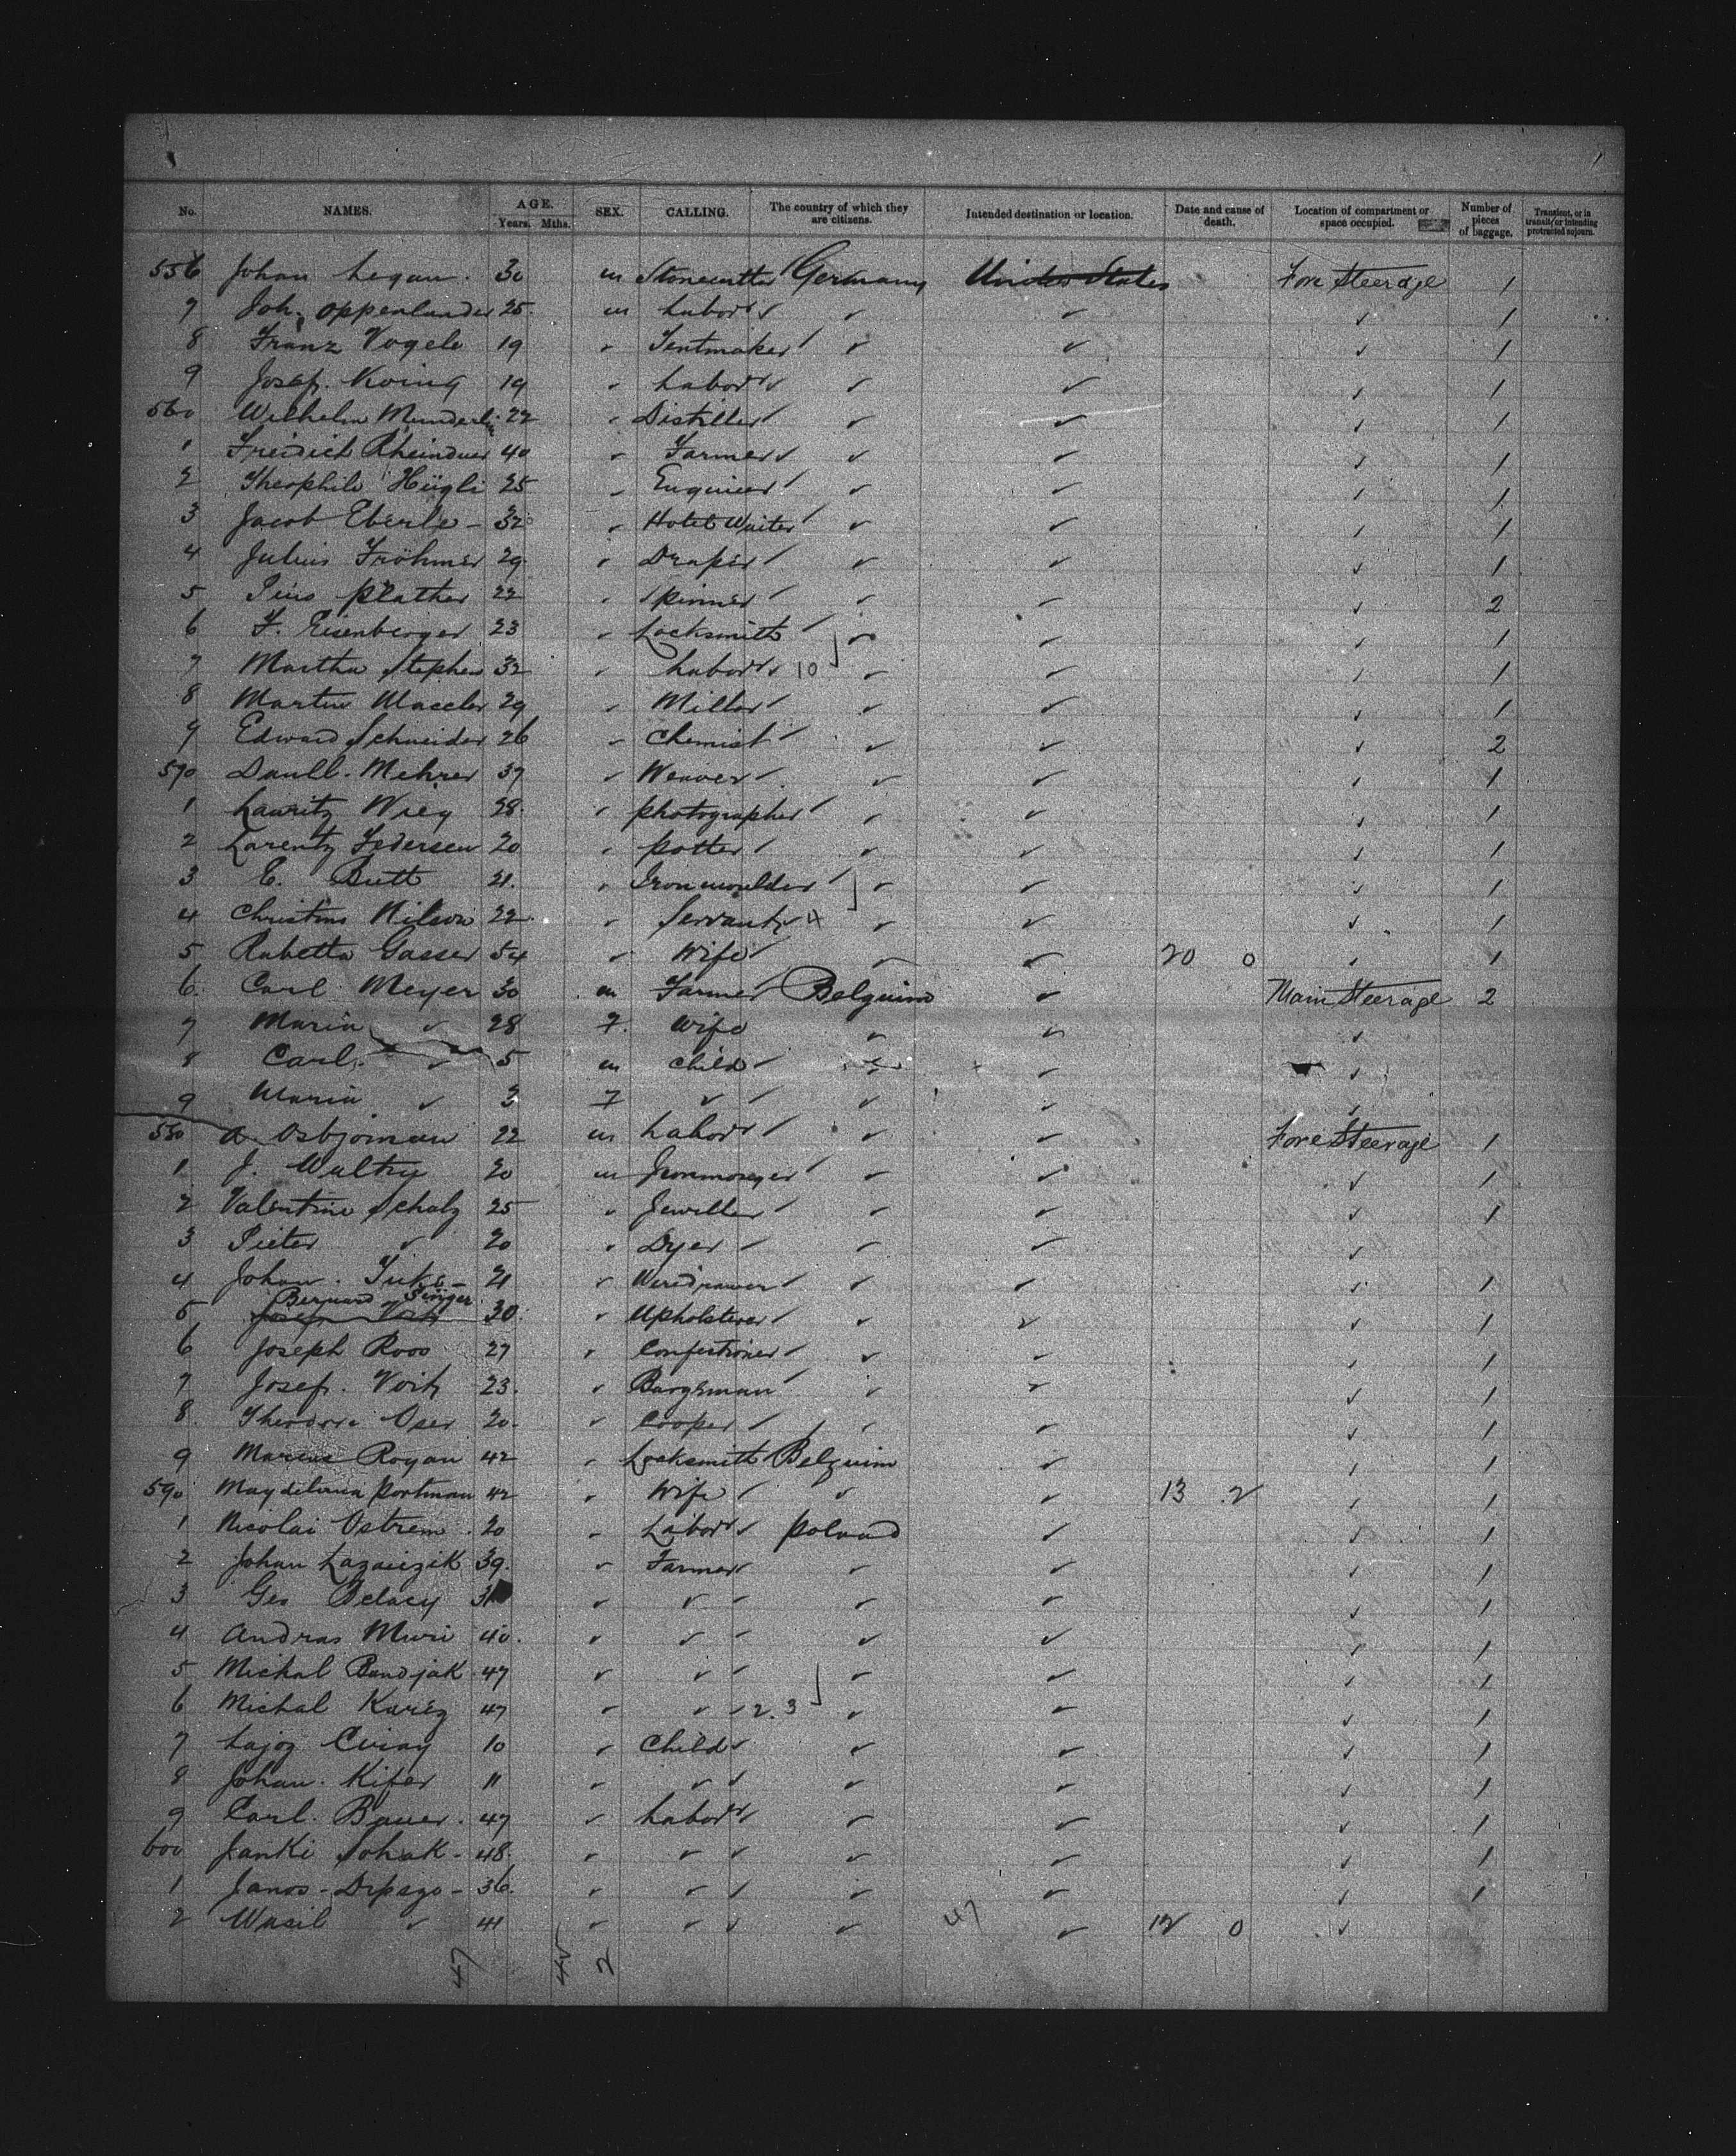 No. NAMES. AGE. Years. Mths. SEX. CALLING. The country of which they are citizens. Intended destination or location. Date and cause of death. Location of compartment or space occupied. Number of pieces of baggage. Transient, or in transit, or intending protracted sojourn.
556 Johan Legan. 30 m Stonecutter Germany United States Fore Steerage 1
7 Joh. Oppenlander 25. m Labor ✓ ✓ ✓ ✓ 1
8 Franz Vogele 19 ✓ Tentmaker ✓ ✓ ✓ 1
9 Josef. 19 ✓ Labor ✓ ✓ ✓ ✓ 1
560 Wilhelm 22 ✓ Distiller ✓ ✓ ✓ 1
1 40 ✓ Farmer ✓ ✓ ✓ ✓ 1
2 Theophile Hügli 25 ✓ Engineer ✓ ✓ ✓ 1
3 Jacob Eberle - 32 ✓ Hotel Waiter ✓ ✓ ✓ 1
4 Julius Fröhmer 29 ✓ Draper ✓ ✓ ✓ 1
5 Pius Plather 22 ✓ Spinner ✓ ✓ ✓ 2
6 F. Eisenberger 23 ✓ Locksmith ✓ ✓ ✓ 1
7 Martha Stephen 32 ✓ Labor ✓ 10 ✓ ✓ ✓ 1
8 Martin 29 ✓ Miller ✓ ✓ ✓ 1
9 Edward Schneider 26 ✓ Chemist ✓ ✓ ✓ 2
570 Danll. Mehrer 37 ✓ Weaver ✓ ✓ ✓ 1
1 Lauritz Wieg 28. ✓ Photographer ✓ ✓ ✓ 1
2 Larentz Federsen 20 ✓ Potter ✓ ✓ ✓ 1
3 E. Butt 21. ✓ Ironmoulder ✓ ✓ ✓ 1
4 Christine Nilson 22. ✓ Servant ✓ 4 ✓ ✓ ✓ 1
5 Rabetta Gasser 54 ✓ Wife ✓ ✓ 20 0 ✓ 1
6. Carl Meyer 30 m Farmer Belguim ✓ Main Steerage 2
7 Maria ✓ 28 F. Wife ✓ ✓ ✓
8 Carl. ✓ 5 m Child ✓ ✓ ✓
9 Maria ✓ 3 F ✓ ✓ ✓ ✓
580 A. Osbjornsen 22 m Labor ✓ ✓ Fore Steerage 1
1 J. Waltry 20 m Ironmonger ✓ ✓ ✓ 1
2 Valentine Schalz 25 ✓ Jeweller ✓ ✓ ✓ 1
3 Pieter ✓ 20 ✓ Dyer ✓ ✓ ✓
4 Johan. 21 ✓ Wiredrawer ✓ ✓ ✓ 1
Bernard Singer
5 30. ✓ Upholsterer ✓ ✓ ✓ 1
6 Joseph Roos 27 ✓ Confectioner ✓ ✓ ✓ 1
7 Josef. Voitz 23. ✓ Bargeman ✓ ✓ ✓ 1
8. Theodore Oser 20. ✓ Cooper ✓ ✓ ✓ 1
9 Marcus Royan 42 ✓ Locksmith Belguim ✓ ✓ 1
590 Magdelena Portman 42 ✓ Wife ✓ ✓ 13 2 ✓ 1
1 Nicolai Ostrem. 20 ✓ Labor ✓ Poland ✓ ✓ 1
2 Johan Lazaiczik 39. ✓ Farmer ✓ ✓ ✓ 1
3 Geo Belacy 31 ✓ ✓ ✓ ✓ ✓ 1
4 Andras Muri 40. ✓ ✓ ✓ ✓ ✓ 1
5 Michal Bandjak. 47 ✓ ✓ ✓ ✓ ✓ 1
6 Michal Karez 47 ✓ ✓ 2.3 ✓ ✓ ✓ 1
7 Lajoz 10 ✓ Child ✓ ✓ ✓ ✓ 1
8 Johan. Kifer 11 ✓ ✓ ✓ ✓ ✓ ✓ 1
9 Carl. Bauer. 47 ✓ Labor ✓ ✓ ✓ ✓ 1
600 Janki Sohak - 48. ✓ ✓ ✓ ✓ ✓ ✓ 1
1 Janos - Dipszo - 36. ✓ ✓ ✓ ✓ ✓ 1
2 Wasil ✓ 41 ✓ ✓ ✓ ✓ 47 ✓ 12 0 ✓
47 45 2